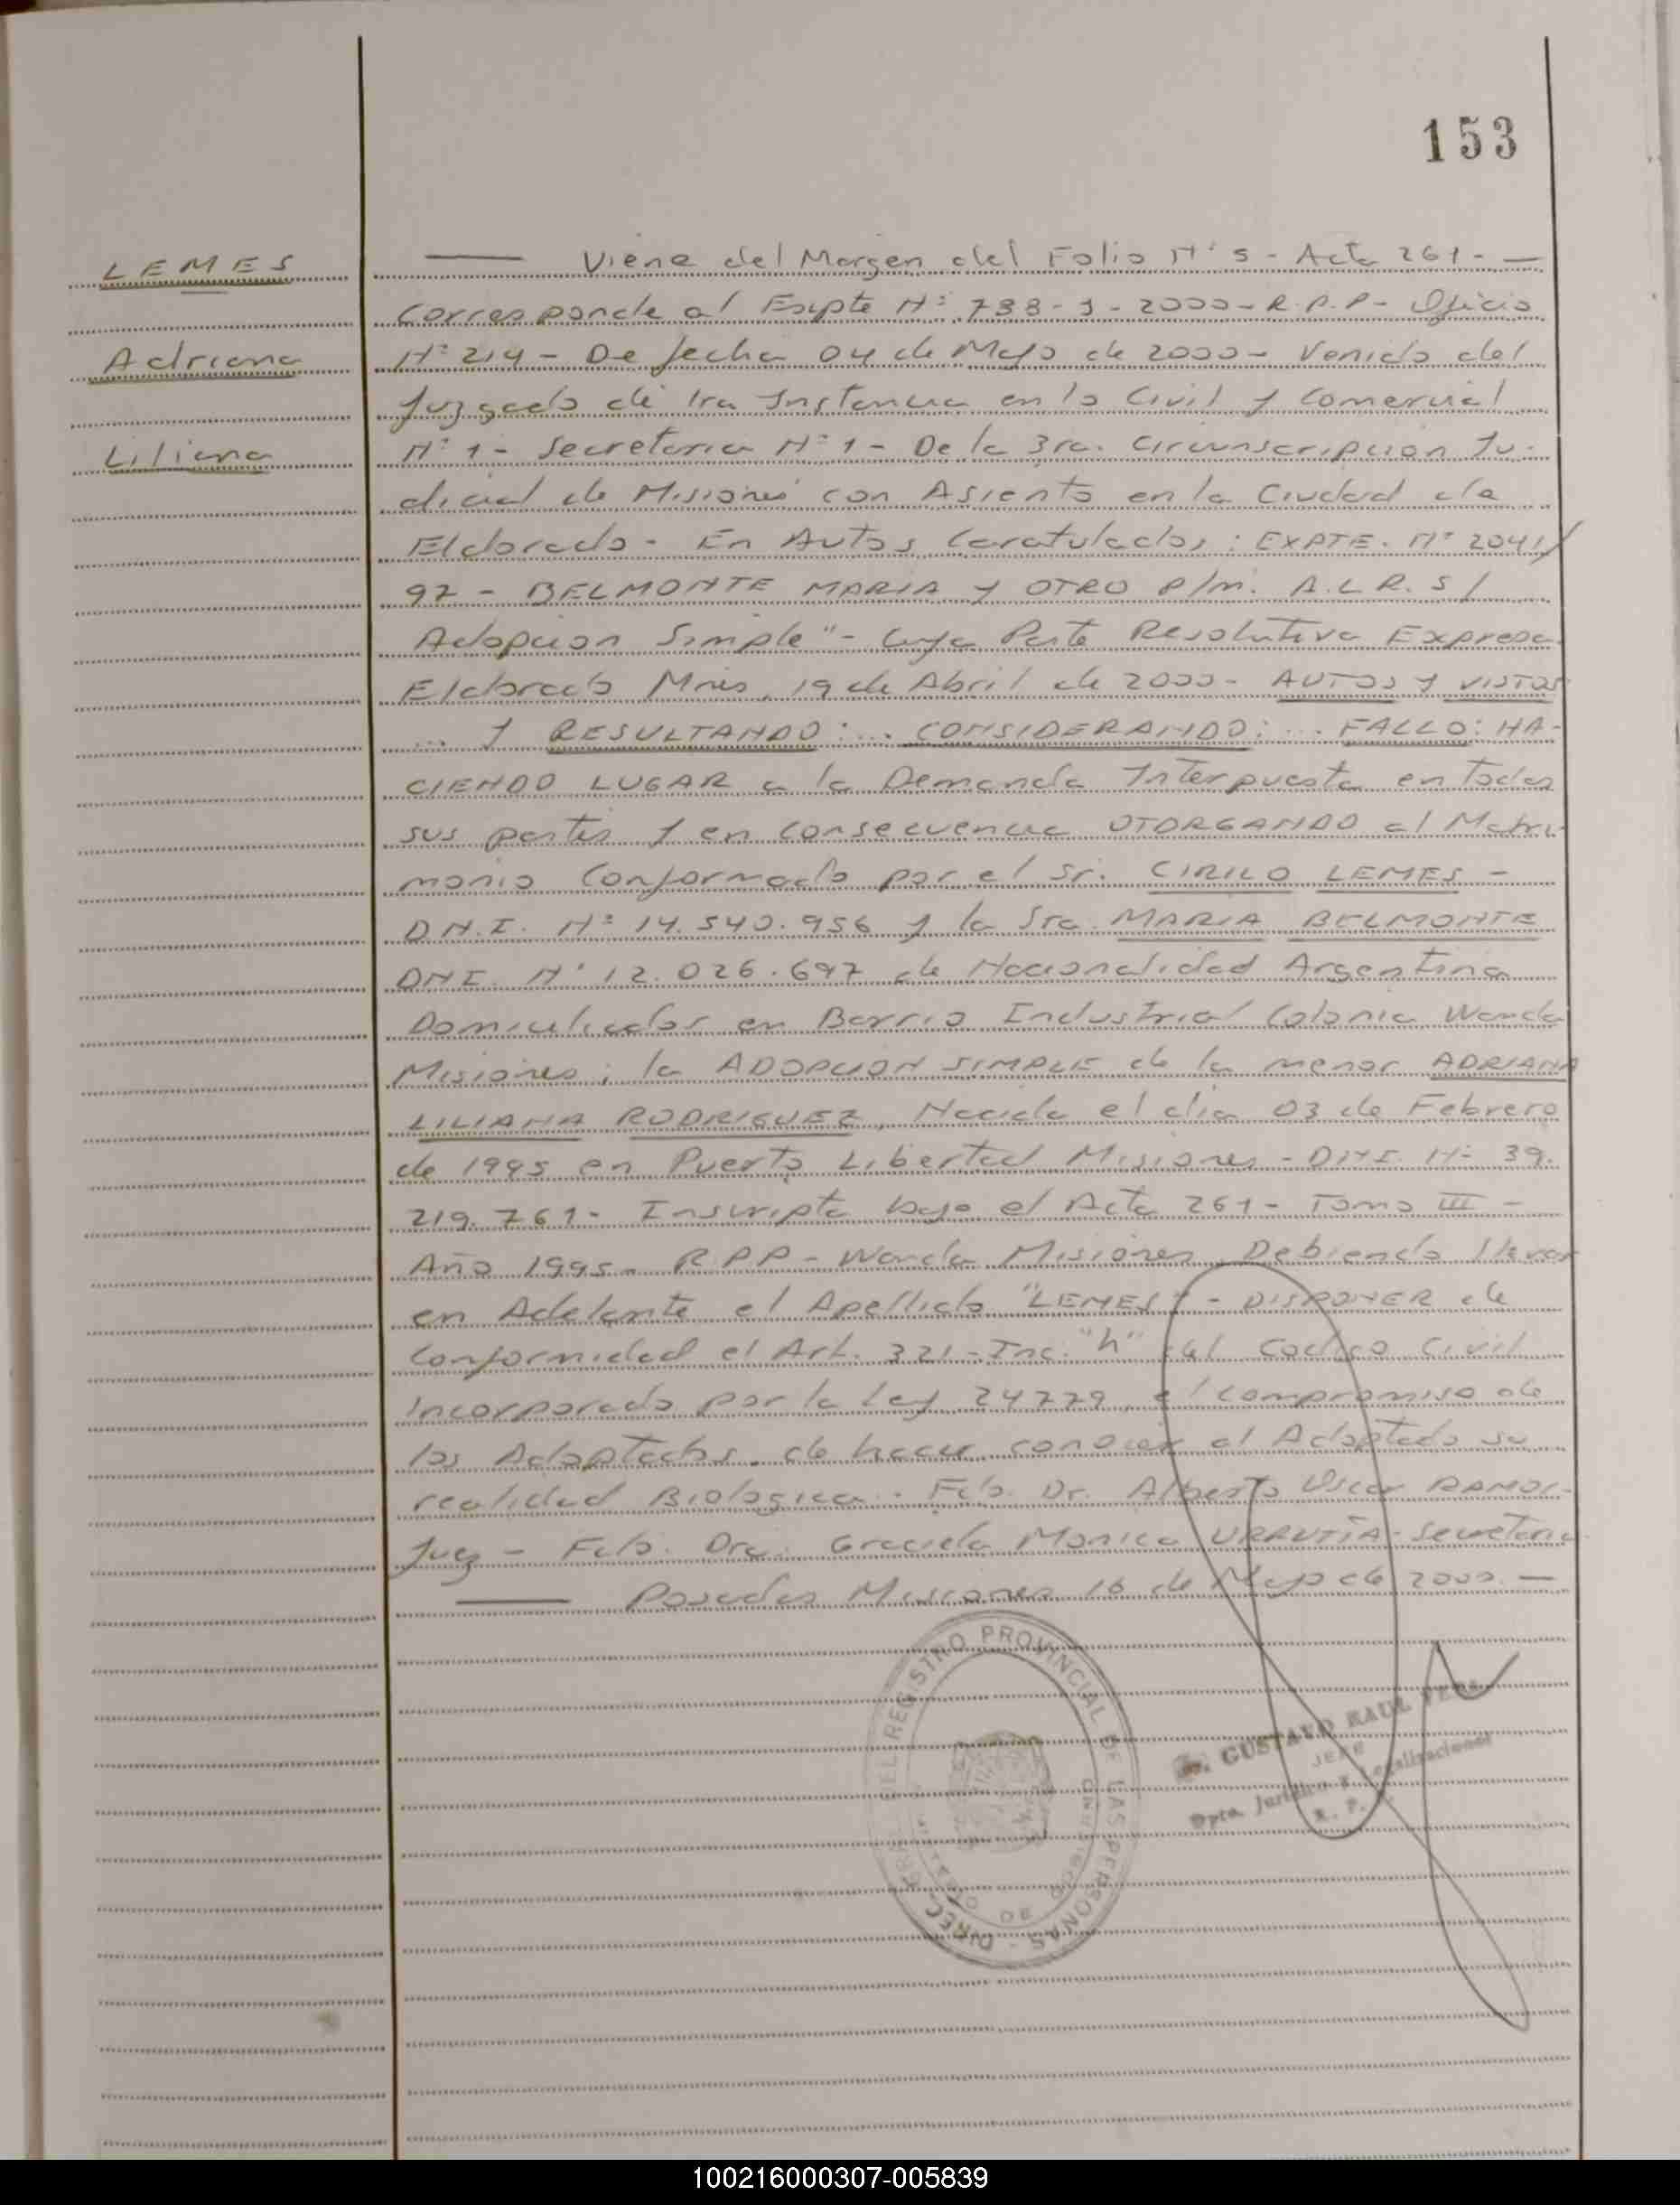 153
LEMES
Adriana
Liliana
Viene del Margen del Folio Nº 5 - Acta 261. -
Corresponde al Expte Nº 788-J-2000-R.P.P- Oficio
Nº 214 - De fecha 04 de Mayo de 2000 - Venido del
Juzgado de 1ra Instancia en lo Civil y Comercial
Nº 1 - Secretaria Nº 1 - De la 3ra. Circunscripcion Ju-
dicial de Misiones con Asiento en la Ciudad de
Eldorado - En Autos Caratulados: EXPTE. Nº 2041/
97 - BELMONTE MARIA y OTRO P/m. A.L.R. S/
Adopcion Simple" - Cuya Parte Resolutiva Expresa
Eldorado Mnes, 19 de Abril de 2000 - AUTOS y VISTOS
... y RESULTANDO: ... CONSIDERANDO: ... FALLO: HA-
CIENDO LUGAR a la Demanda Interpuesta en todas
sus partes y en consecuencia OTORGANDO al Matri-
monio Conformado por el Sr. CIRILO LEMES -
D.N.I. Nº 14.540.956 y la Sra. MARIA BELMONTE
DNI. Nº 12.026.697 de Nacionalidad Argentina
Domiciliados en Barrio Industrial Colonia Wanda
Misiones; la ADOPCION SIMPLE de la menor ADRIANA
LILIANA RODRIGUEZ, Nacida el dia 03 de Febrero
de 1995 en Puerto Libertad Misiones - DNI. Nº 39.
219.761 - Inscripta bajo el Acta 261 - Tomo III -
Año 1995 - R.P.P - Wanda Misiones. Debiendo llevar
en Adelante el Apellido "LEMES" - DISPONER de
Conformidad el Art. 321 - Inc. "h" del Codigo Civil
Incorporado por la Ley 24779, el compromiso de
los Adoptados, de hacer conocer al Adoptado su
realidad Biologica. Fdo. Dr. Alberto Oscar RAMOS-
Juez - Fdo. Dra. Graciela Monica URRUTIA - Secretaria
Posadas Misiones 16 de Mayo de 2000. -
DIRECC. GRAL. DEL REGISTRO PROVINCIAL DE LAS PERSONAS
GUSTAVO RAUL VERA
JEFE
Dpto. Jurídico y Legalizaciones
R. P. P.
100216000307-005839